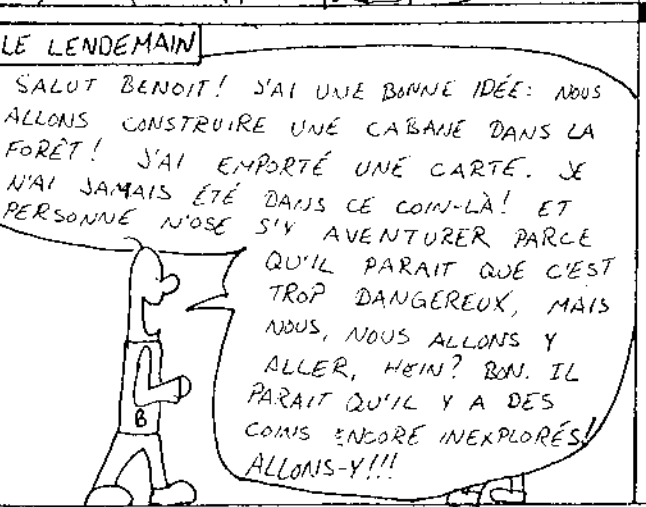 LE LENDEMAIN
SALUT BENOIT! J'AI UNE BONNE IDÉE: NOUS
ALLONS CONSTRUIRE UNE CABANE DANS LA
FORÊT! J'AI EMPORTÉ UNE CARTE. JE
N'AI JAMAIS ÉTÉ DANS CE COIN-LÀ! ET
PERSONNE N'OSE S'Y AVENTURER PARCE
QU'IL PARAIT QUE C'EST
TROP DANGEREUX, MAIS
NOUS, NOUS ALLONS Y
ALLER, HEIN? BON. IL
PARAIT QU'IL Y A DES
COINS ENCORE INEXPLORÉS!
ALLONS-Y!!!
B